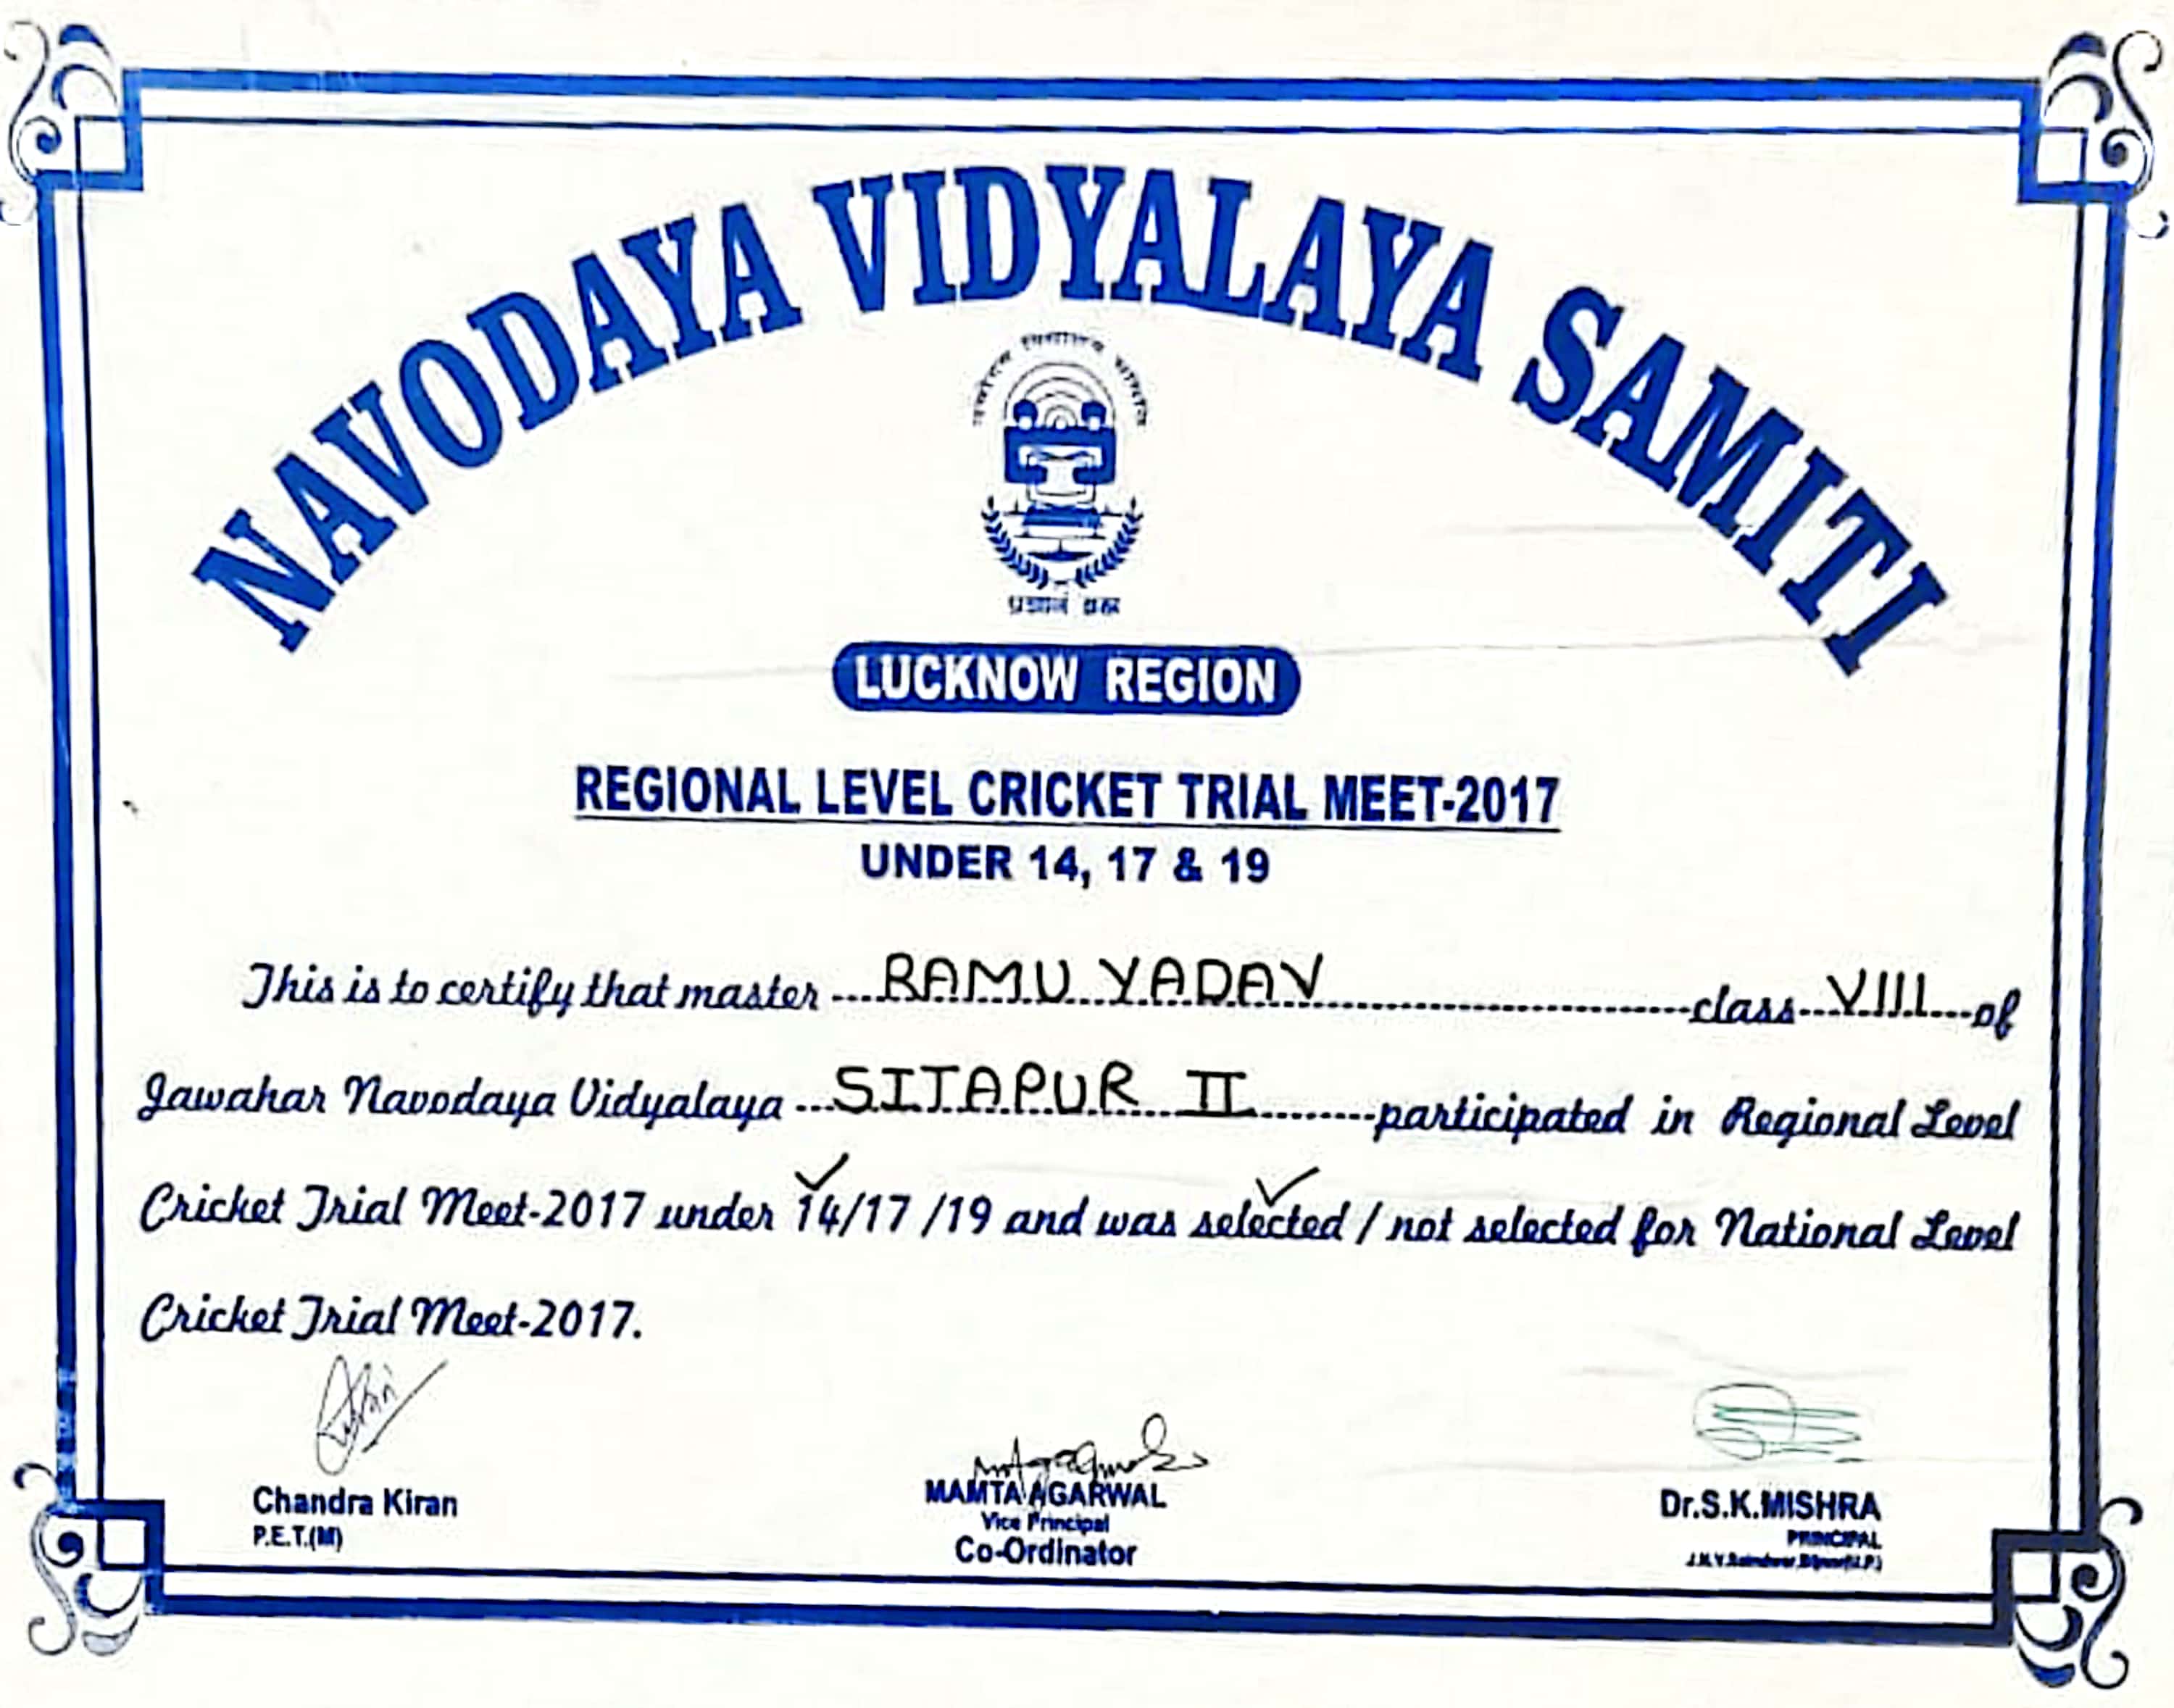 NAVODAYA VIDYALAYA SAMITI
LUCKNOW REGION
REGIONAL LEVEL CRICKET TRIAL MEET-2017
UNDER 14, 17 & 19
This is to certify that master RAMU YADAV class VIII of
Jawahar Navodaya Vidyalaya SITAPUR II participated in Regional Level
Cricket Trial Meet-2017 under 14/17 /19 and was selected / not selected for National Level
Cricket Trial Meet-2017.
Chandra Kiran
P.E.T.(M)
MAMTA AGARWAL
Vice Principal
Co-Ordinator
Dr.S.K.MISHRA
PRINCIPAL